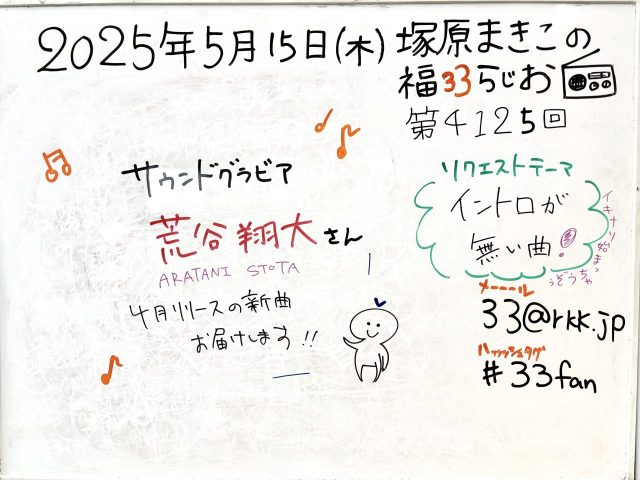 2025年5月15日(木) 塚原まきこの
福33らじお
第4125回
サウンドグラビア
荒谷翔大さん
ARATANI SHOTA
4月リリースの新曲
お届けします!!
リクエストテーマ
イントロが
無い曲!
イキナリ始まっ
メーール
33@rkk.jp
ハッッシュタグ
#33fan